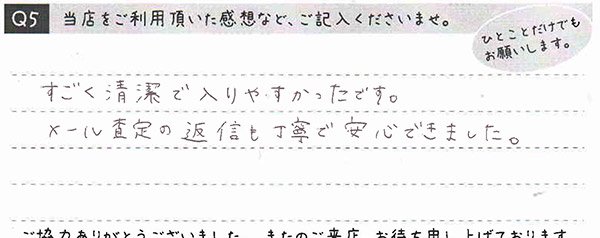 Q5 当店をご利用頂いた感想など、ご記入くださいませ。
ひとことだけでも
お願いします。
すごく清潔で入りやすかったです。
メール査定の返信も丁寧で安心できました。
ご協力ありがとうございました。またのご来店、お待ち申し上げております